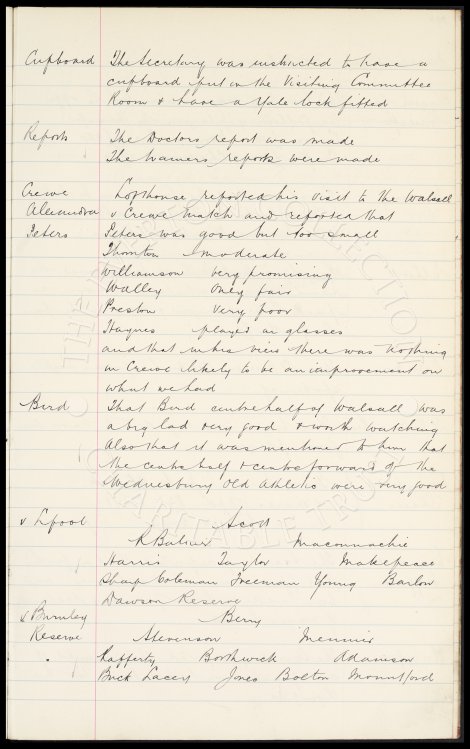 Cupboard The Secretary was instructed to have a
cupboard put in the Visiting Committee
Room & have a Yale lock fitted
Reports The Doctors report was made
The trainers reports were made
Crewe Lofthouse reported his visit to the Walsall
Alexandra v Crewe match and reported that
Peters Peters was good but too small
Thornton moderate
Williamson very promising
Walley only fair
Preston very poor
Haynes played in glasses
and that in his view there was nothing
in Crewe likely to be an improvement on
what we had
Bird That Bird centre half of Walsall was
a big lad & very good & worth watching
Also that it was mentioned to him that
the centre half & centre forward of the
Wednesbury Old Athletic were very good
v L'pool Scott
R Balmer Maconnachie
Harris Taylor Makepeace
Sharp Coleman Freeman Young Barlow
Dawson Reserve
v Burnley Berry
Reserve Stevenson Meunier
Rafferty Borthwick Adamson
Buck Lacey Jones Bolton Mountford